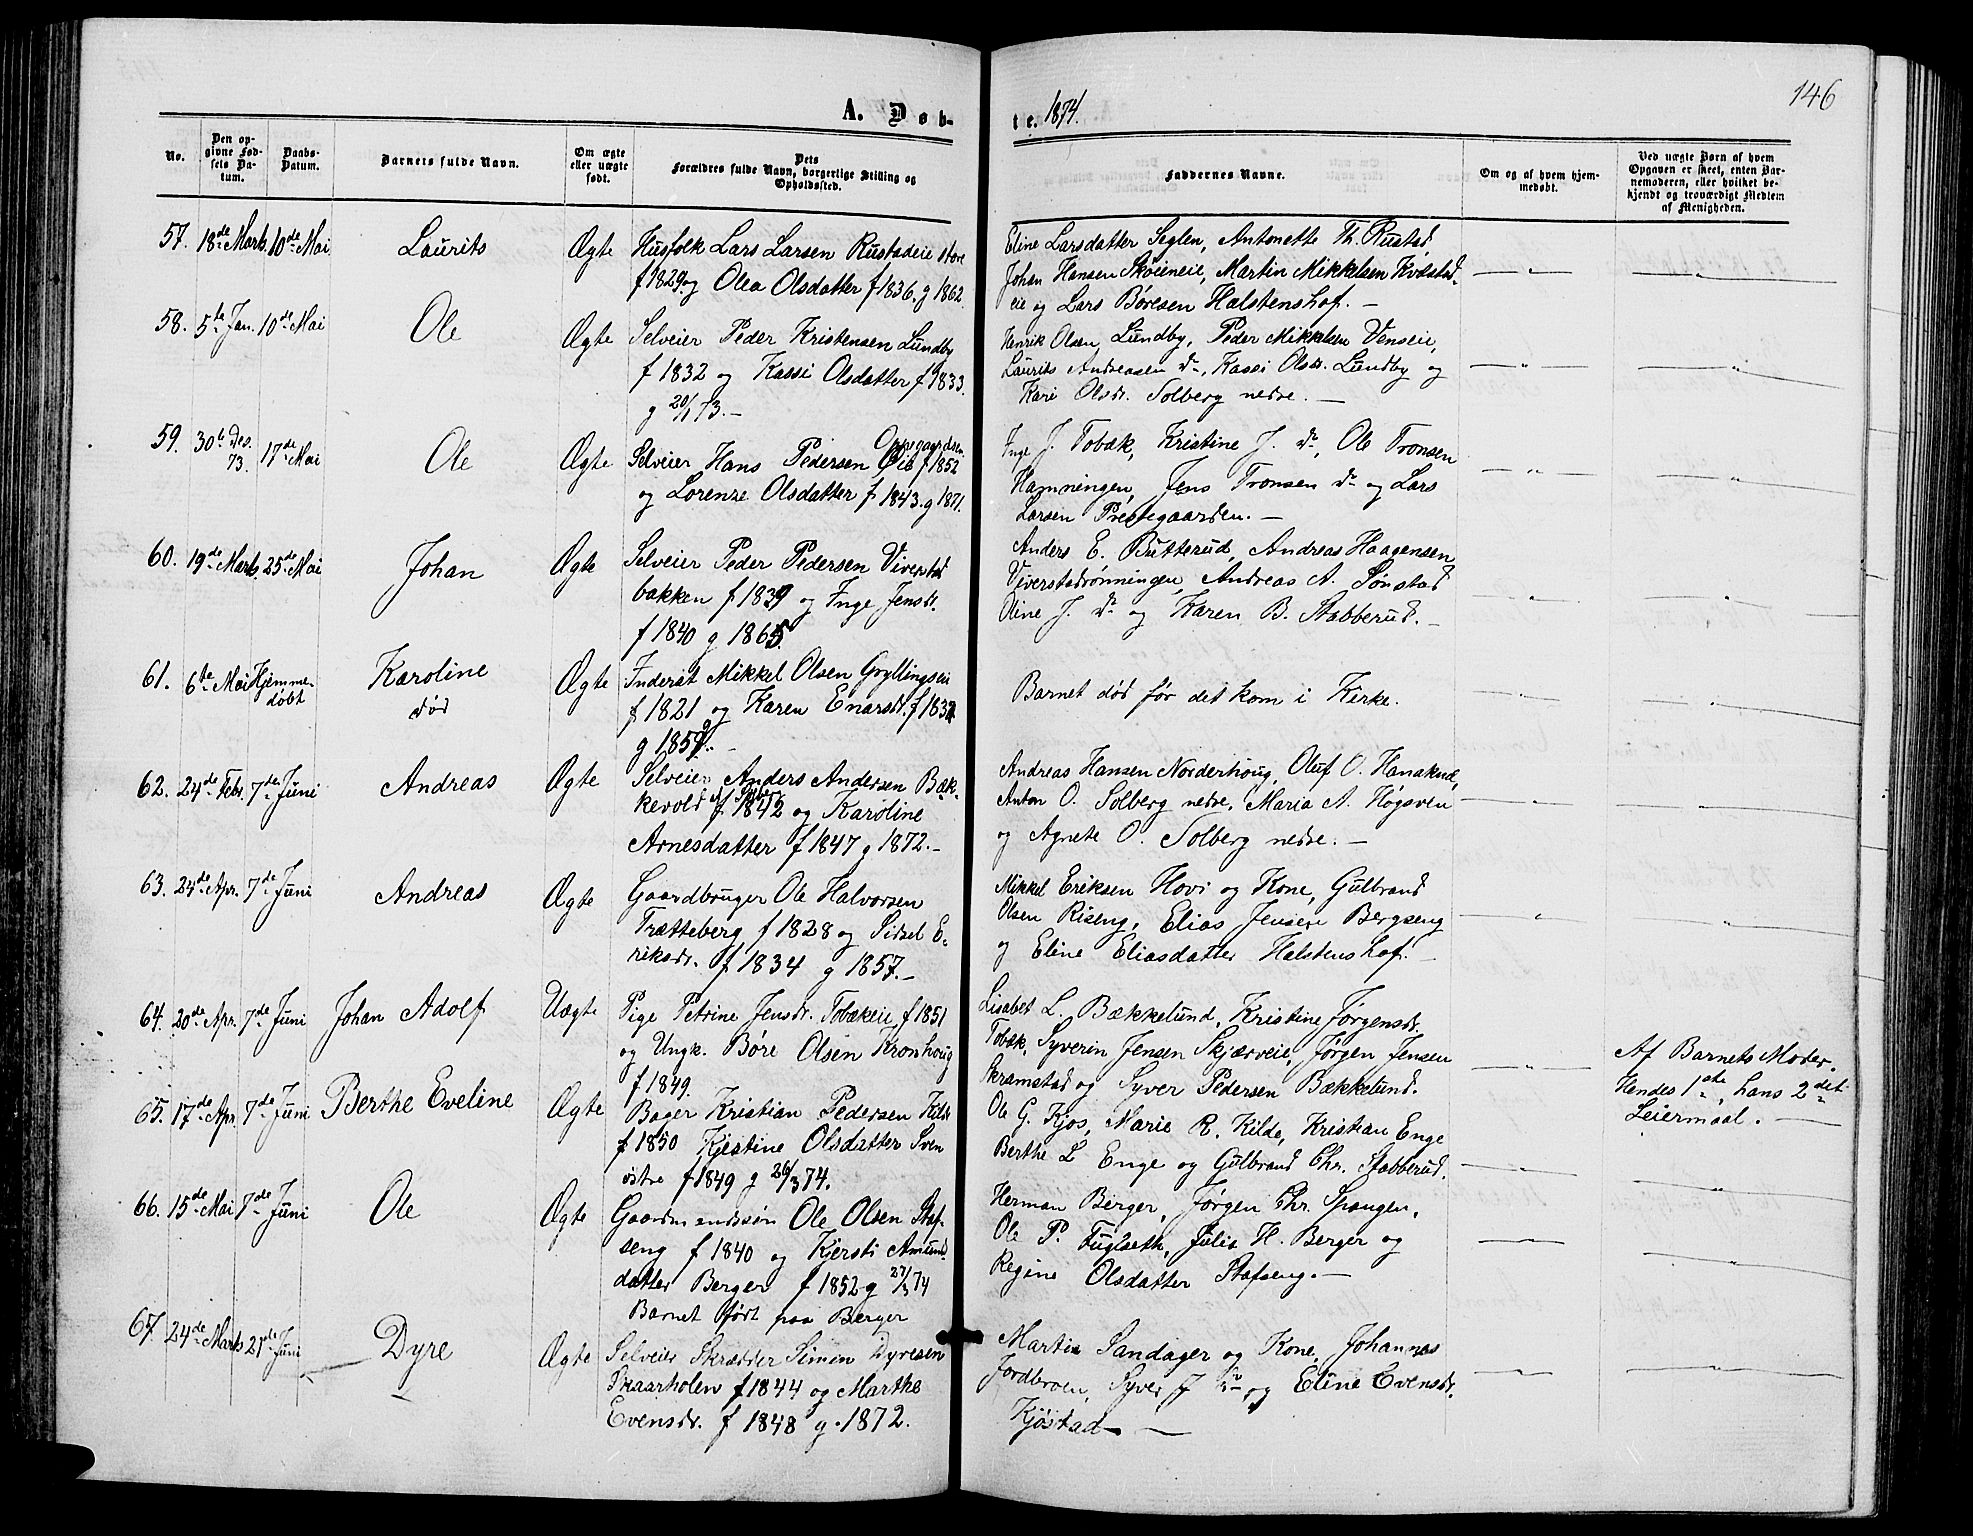 146
A. Døb-
te. 1874.
No.
Den op-
givne Fød-
sels Da-
tum.
Daabs-
Datum.
Barnets fulde Navn.
Om ægte
eller uægte
født.
Dets
Forældres fulde Navn, borgerlige Stilling og
Opholdssted.
Faddernes Navne.
Om og af hvem hjem-
medøbt.
Ved uægte Børn af hvem
Opgaven er skeet, enten Bar-
nemoderen, eller hvilket be-
kjendt og troværdigt Medlem
af Menigheden.
57. 18de Marts 10de Mai Laurits Ægte
Husfolk Lars Larsen Rustadeie store
f 1829 og Olea Olsdatter f 1836. g 1862
Eline Larsdatter Seglen, Antonette Th. Rustad
Johan Hansen Skøieneie, Martin Mikkelsen Kvæstad-
eie og Lars Børesen Halstenshof. —
58. 5te Jan. 10de Mai Ole Ægte
Selveier Peder Kristensen Lundby
f 1832 og Kassi Olsdatter f 1833.
g 20/1 73. —
Henrik Olsen Lundby, Peder Mikkelsen Venseie,
Laurits Andreasen do, Kassi Olsdr. Lundby og
Kari Olsdr. Solberg nedre. —
59. 30te Des. 73. 17de Mai Ole Ægte
Oppegaardsen.
Selveier Hans Pedersen Øie f 1852
og Lorense Olsdatter f 1843. g 1871.
Inge J. Tobæk, Kristine J. do, Ole Tronsen
Hamningen, Jens Tronsen do og Lars
Larsen Prestegaarden. —
60. 19de Marts 25de Mai Johan Ægte
Selveier Peder Pedersen Viverstad
bakken f 1839 og Inge Jensdr.
f 1840 g 1865.
Anders E. Butterud, Andreas Haagensen
Viverstadrønningen, Andreas A. Sønstad
Oline J. do og Karen B. Stabberud. —
61. 6te Mai Hjemme-
døbt
Karoline
død
Ægte
Inderst Mikkel Olsen Gryllingseie
f 1821 og Karen Enarsdr. f 1832
g 1859. —
Barnet død før det kom i Kirke.
62. 24de Febr. 7de Juni Andreas Ægte
Selveier Anders Andersen Bæk-
kevold f 1842 og Karoline
Arnesdatter f 1847 g 1872. —
Andreas Hansen Norderhoug, Oluf O. Hanaknæ,
Anton O. Solberg nedre, Maria A. Høgsven
og Agnete O. Solberg nedre. —
63. 24de Apr. 7de Juni Andreas Ægte
Gaardbruger Ole Halvorsen
Trætteberg f 1828 og Sidsel E-
riksdr. f 1834 g 1857. —
Mikkel Eriksen Hovi og Kone, Gulbrand
Olsen Riseng, Elias Jensen Bergseng
og Eline Eliasdatter Halstenshof. —
64. 20de Apr. 7de Juni Johan Adolf Uægte
Pige Petrine Jensdr. Tobækeie f 1851
og Ungk. Børe Olsen Kronhoug
f 1849.
Lisabet L. Bækkelund, Kristine Jørgensdr.
Tobæk, Syverin Jensen Skjærveie, Jørgen Jensen
Skramstad og Syver Pedersen Bækkelund.
Af Barnets Moder.
Hendes 1ste, hans 2det
Leiermaal. —
65. 17de Apr. 7de Juni Berthe Eveline Ægte
Bager Kristian Pedersen Kilde
f 1850 Kjestine Olsdatter Sven
østre f 1849 g 26/3 74.
Ole G. Kjos, Marie R. Kilde, Kristian Enge
Berthe L Enge og Gulbrand Chr. Stabberud.
66. 15de Mai 7de Juni Ole Ægte
Gaardmandssøn Ole Olsen Staf-
seng f 1840 og Kjersti Amund-
datter Berger f 1852 g 27/3 74
Barnet født paa Berger
Herman Berger, Jørgen Chr. Spangen,
Ole P. Fuglseth, Julia H. Berger og
Regine Olsdatter Stafseng. —
67. 24de Marts 21de Juni Dyre Ægte
Selveier Skrædder Simen Dyresen
Skaarholen f 1844 og Marthe
Evensdr. f 1848 g. 1872.
Martin Sandager og Kone, Johannes
Jordbroen, Syver J do og Eline Evensdr.
Kjøstad. —